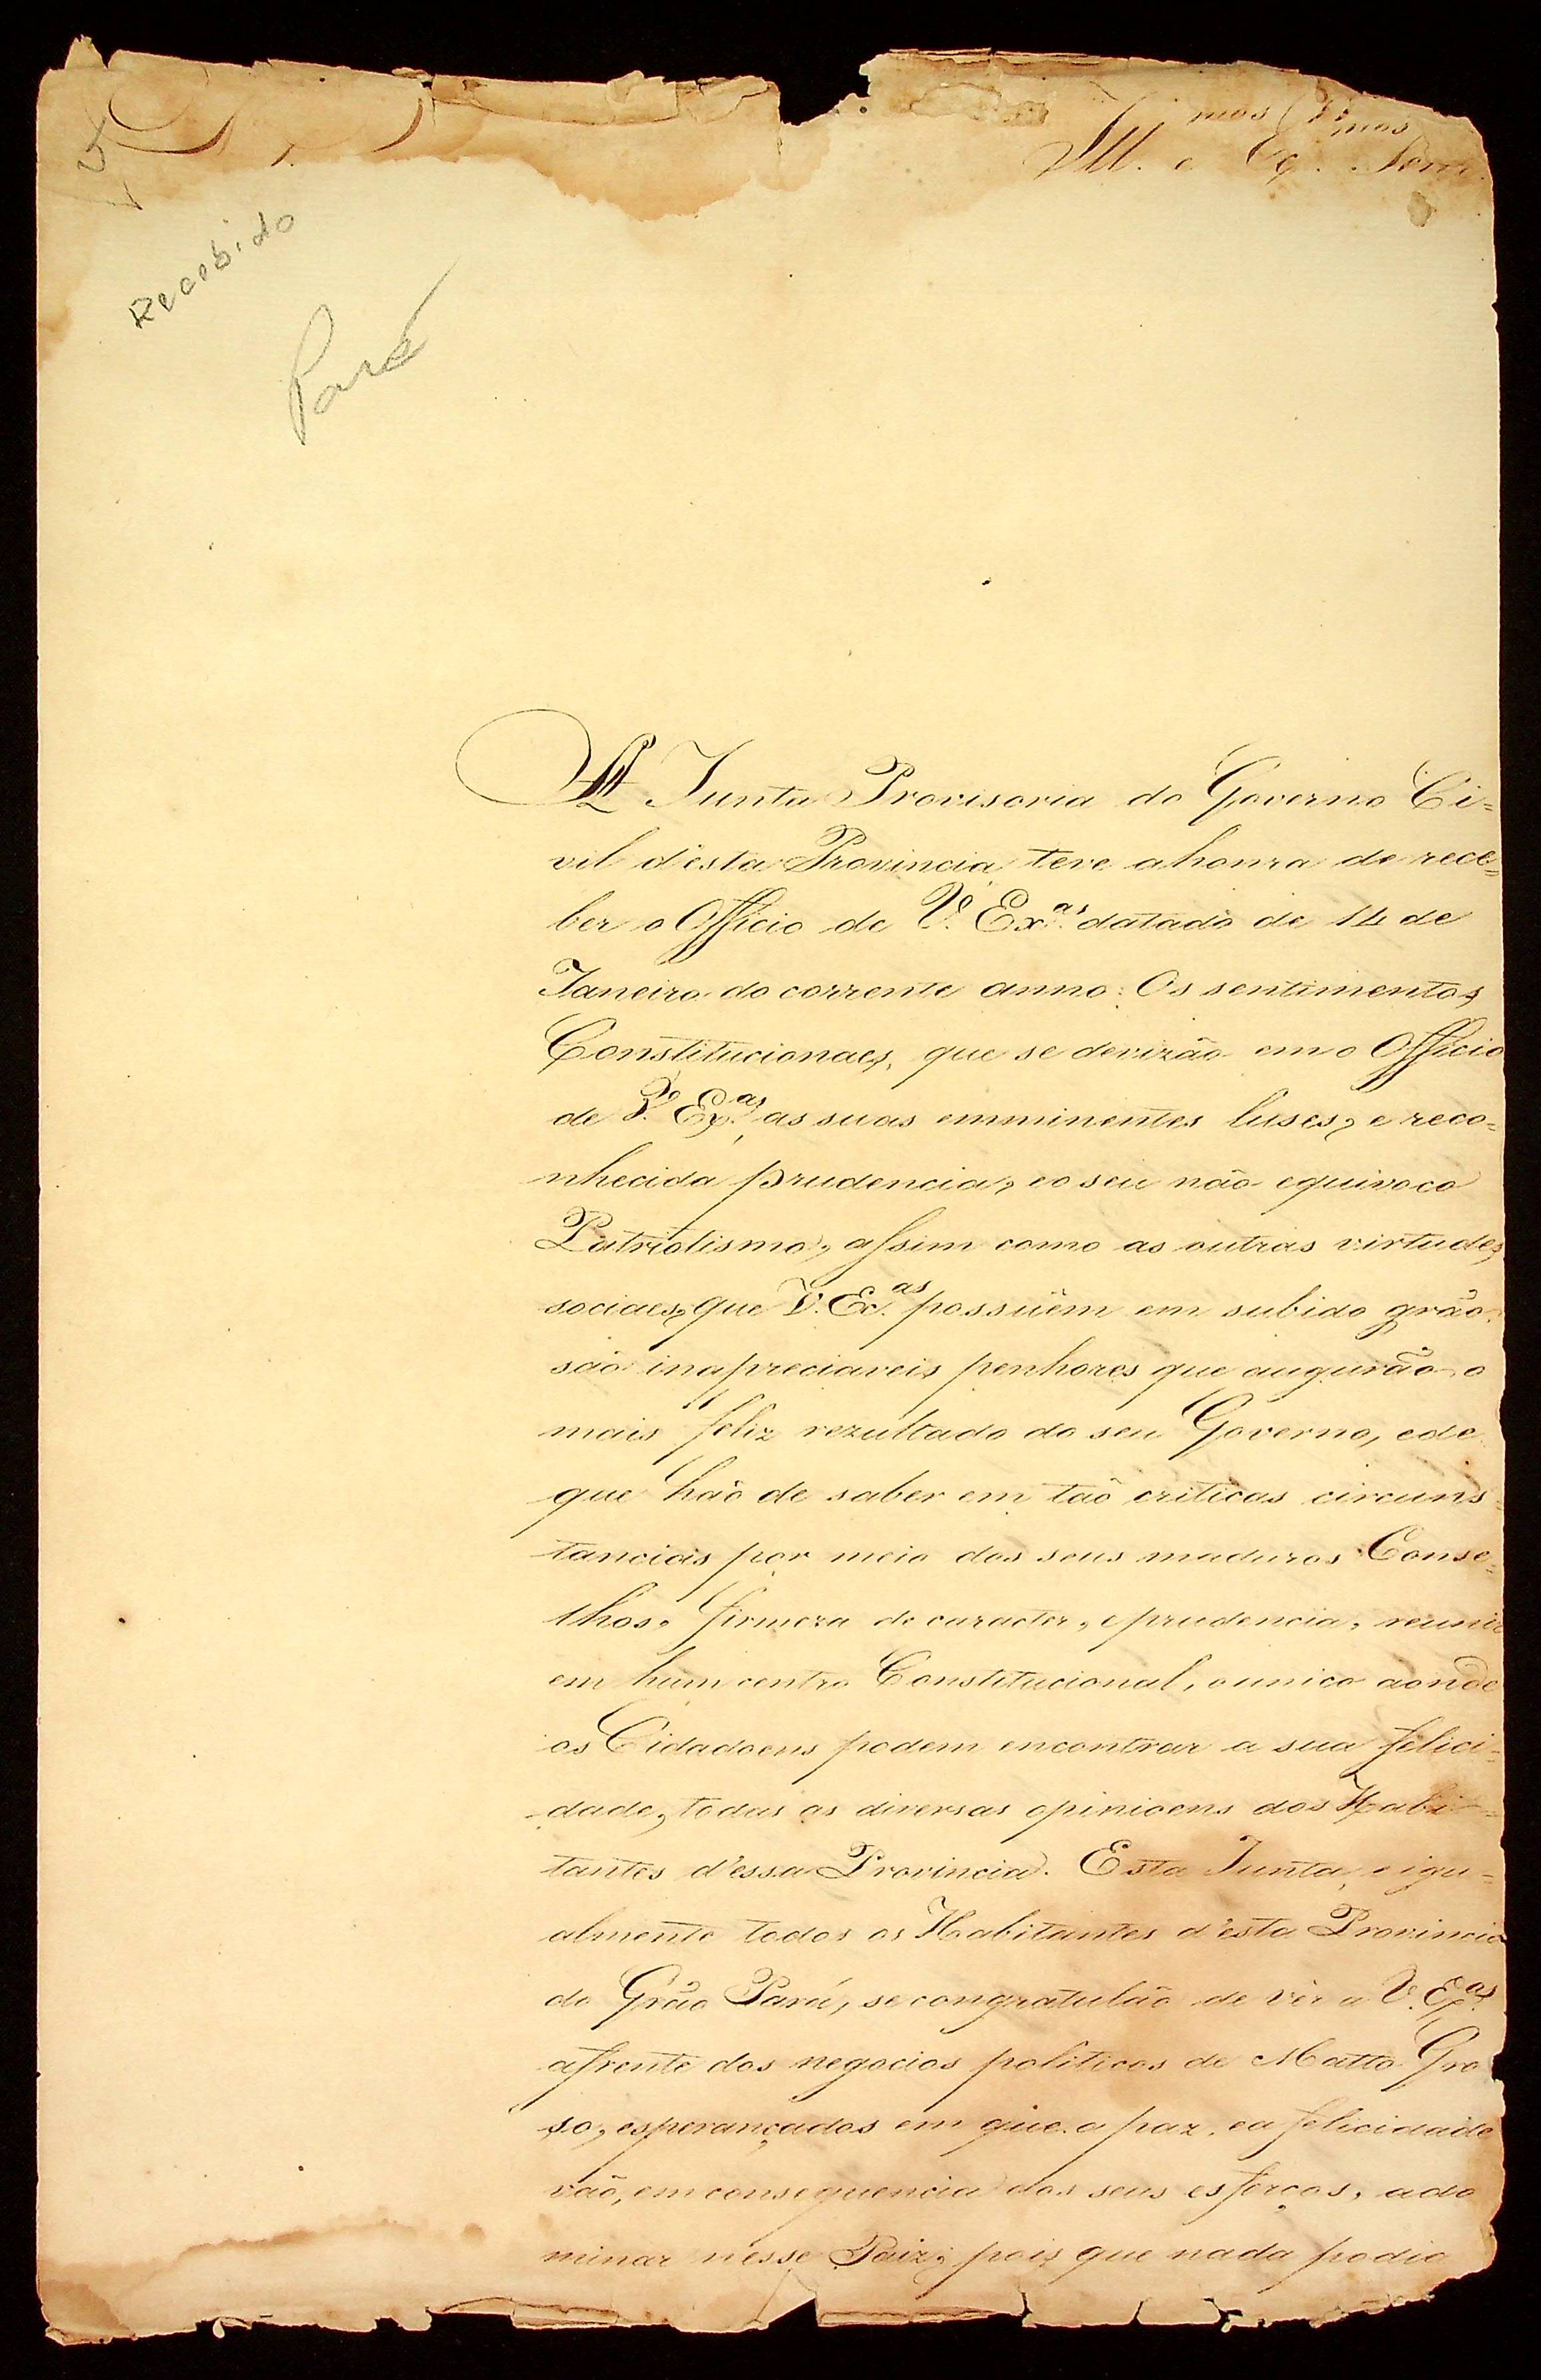 Ill.mos e Ex.mos Senr
Recebido
Pará
A Junta Provisoria do Governo Ci=
vil d'esta Provincia teve ahonra de rece=
ber o Officio de V. Ex.as datado de 14 de
Janeiro do corrente anno: Os sentimentos
Constitucionaes, que se devizão em o Officio
de V. Ex.as, as suas emminentes luses, e reco=
nhecida prudencia, eo seu não equivoco
Patriotismo, assim como as outras virtudes
sociaes, que V. Ex.as possuêm em subido grão
são inapreciaveis penhores que augurão o
mais feliz rezultado do seu Governo, ede
que hão de saber em tão criticas circuns=
tancias por meio dos seus maduros Conse=
lhos, firmeza de caracter, eprudencia, reunir
em hum centro Constitucional, ounico aonde
os Cidadoens podem encontrar a sua felici=
dade, todas as diversas opinioens dos Habi=
tantes d'essa Provincia. Esta Junta, eigu=
almente todos os Habitantes d'esta Provincia
do Grão Pará, secongratulão de vêr a V. Ex.as
afrente dos negocios politicos de Matto Gro
so, esperançados em que a paz, ea felicidade
vão, emconsequencia dos seus esforços, ado
minar nesse Paiz; pois que nada podia